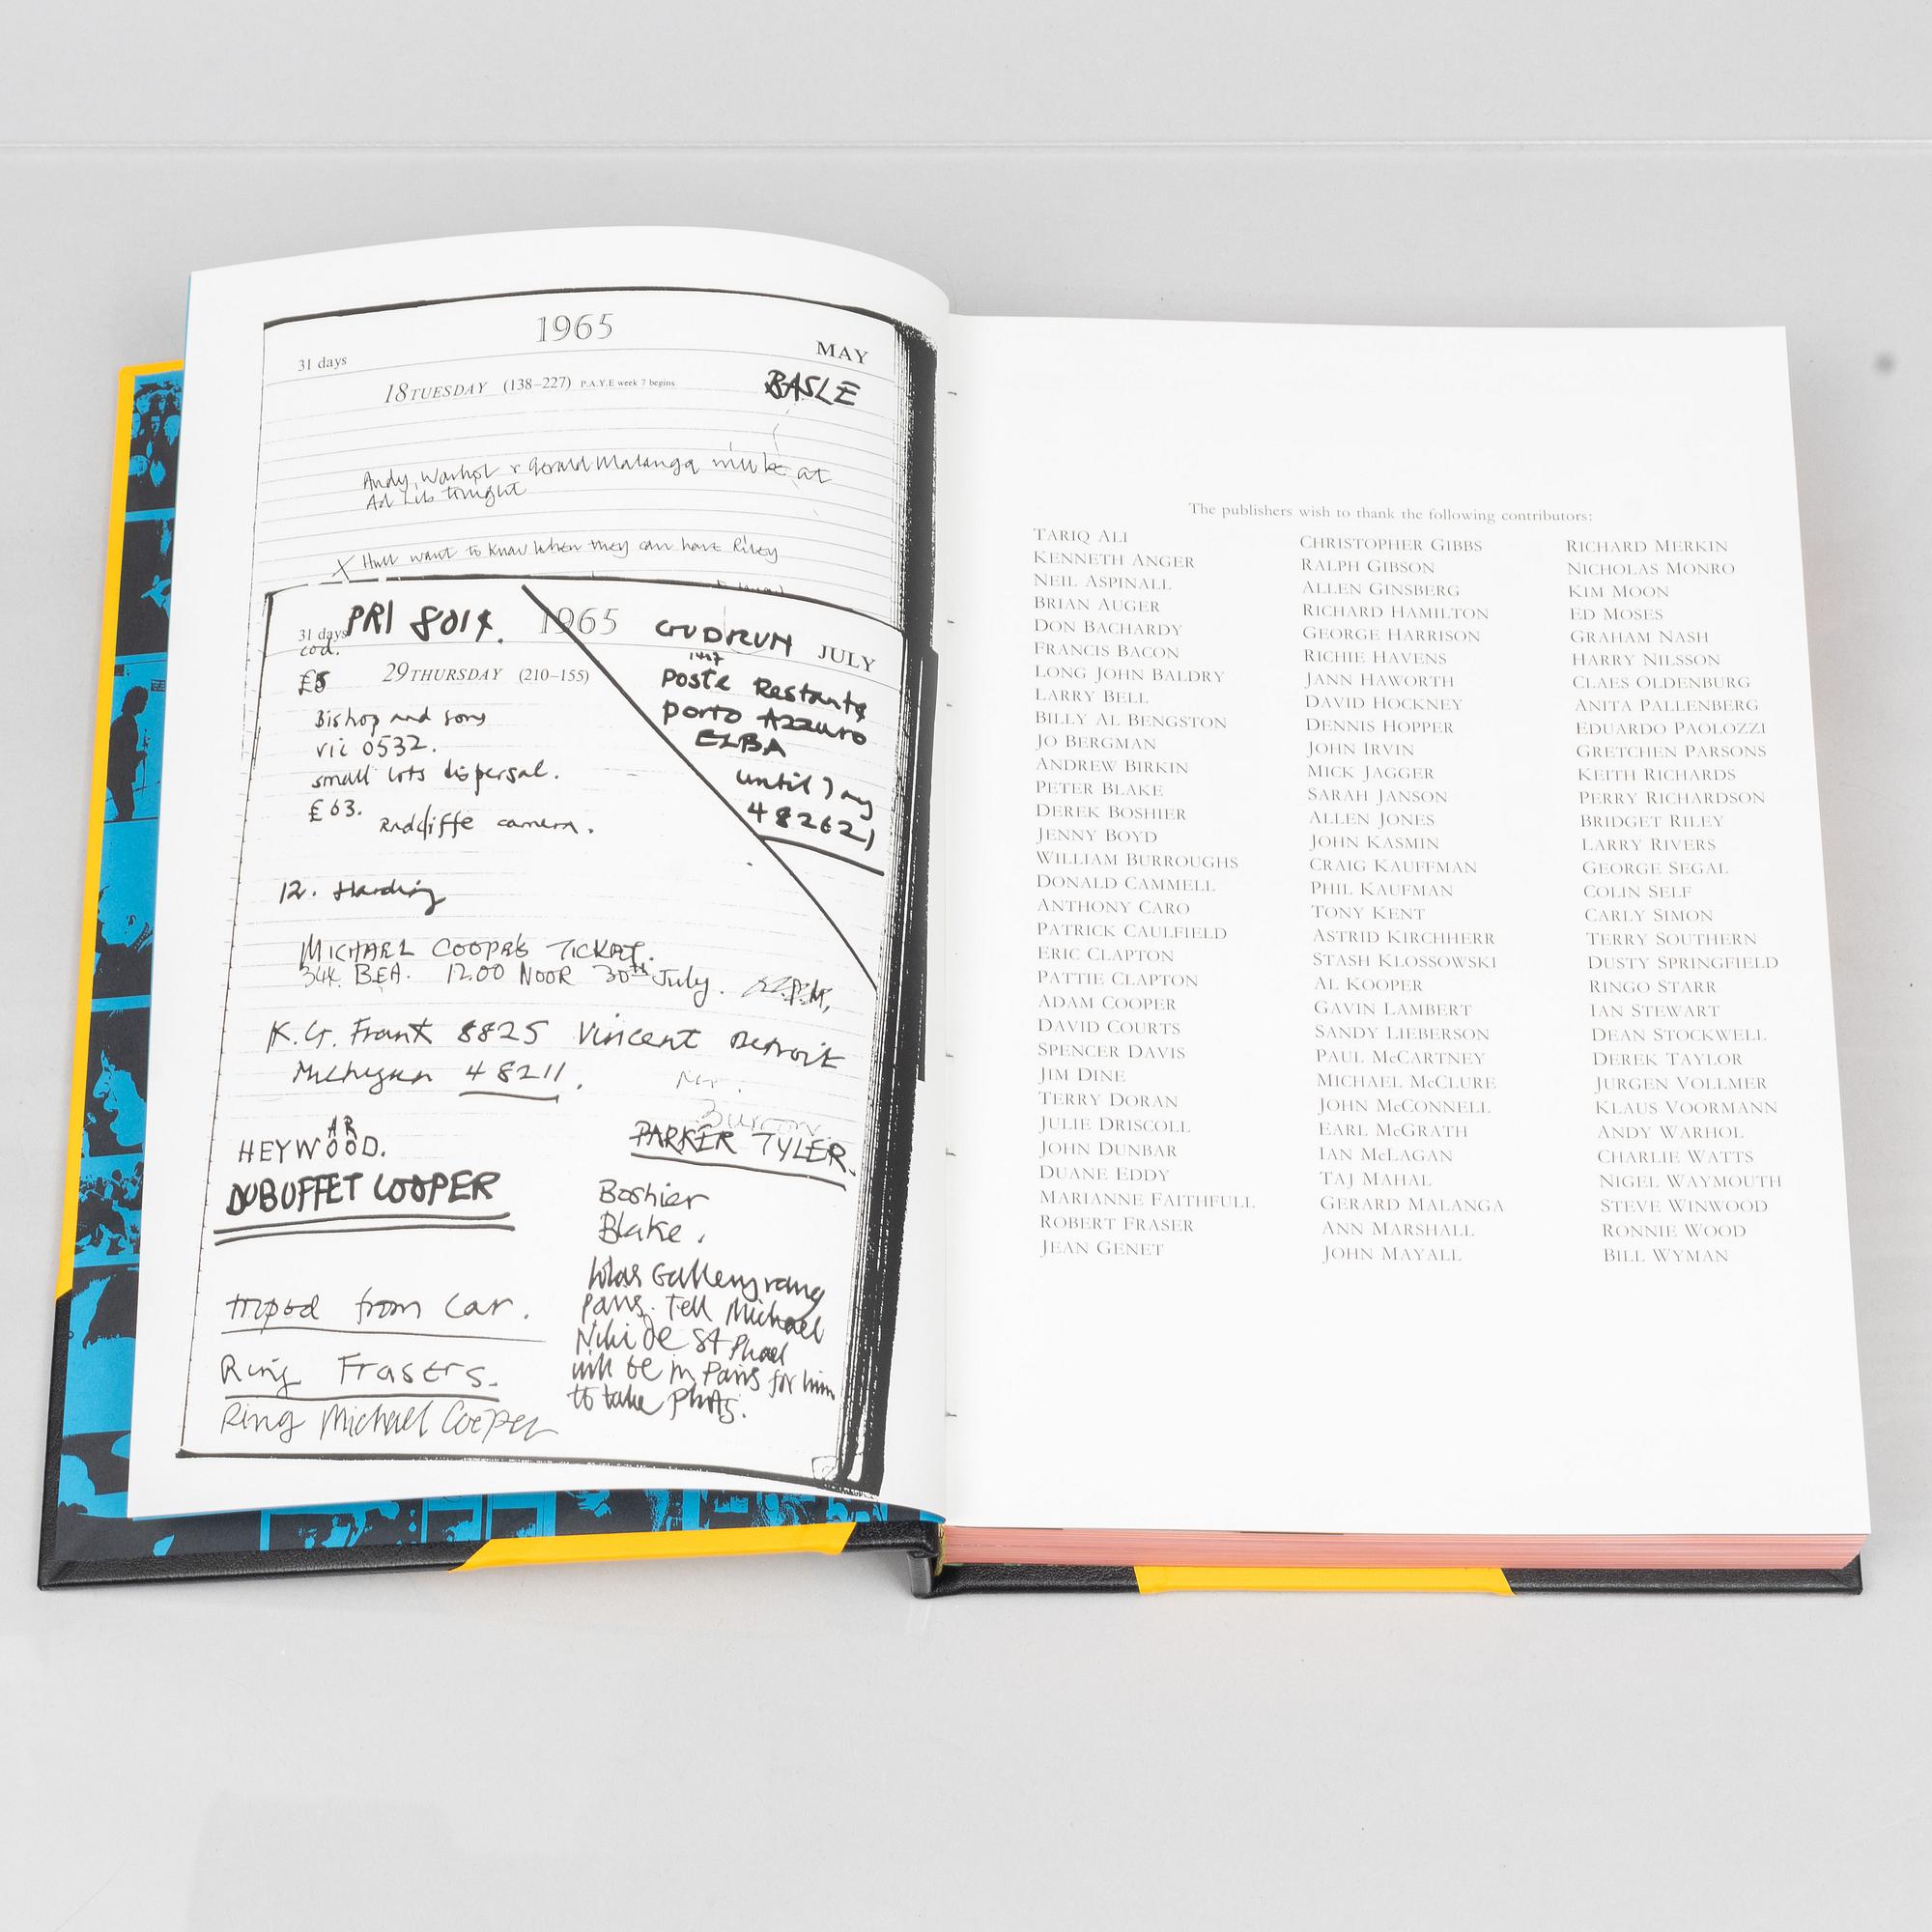 1965
31 days
MAY
18 TUESDAY (138–227) P.A.Y.E week 7 begins
BASLE
Andy Warhol + Gerald Malanga will be at
Ad Lib tonight
X Hull want to know when they can have Riley
PRI 8014.
1965
31 days
JULY
cod.
£8
29 THURSDAY (210–155)
Bishop and sons
vic 0532.
small lots dispersal.
£63.
Radcliffe camera.
GUDRUN
Poste Restante
Porto Azzuro
ELBA
until
48262
12. Harding
MICHAEL COOPER'S TICKET.
344 BEA. 12.00 NOOR 30th July.
K.G. Frank 8825 Vincent Detroit
Michigan 48211.
Mr.
AR
HEYWOOD.
PARKER TYLER.
DUBUFFET COOPER
Boshier
Blake.
Gallery rang
Paris. Tell Michael
Niki de St Phael
will be in Paris for him
to take photos.
tripod from car.
Ring Frasers.
Ring Michael Cooper
The publishers wish to thank the following contributors:
TARIQ ALI
KENNETH ANGER
NEIL ASPINALL
BRIAN AUGER
DON BACHARDY
FRANCIS BACON
LONG JOHN BALDRY
LARRY BELL
BILLY AL BENGSTON
JO BERGMAN
ANDREW BIRKIN
PETER BLAKE
DEREK BOSHIER
JENNY BOYD
WILLIAM BURROUGHS
DONALD CAMMELL
ANTHONY CARO
PATRICK CAULFIELD
ERIC CLAPTON
PATTIE CLAPTON
ADAM COOPER
DAVID COURTS
SPENCER DAVIS
JIM DINE
TERRY DORAN
JULIE DRISCOLL
JOHN DUNBAR
DUANE EDDY
MARIANNE FAITHFULL
ROBERT FRASER
JEAN GENET
CHRISTOPHER GIBBS
RALPH GIBSON
ALLEN GINSBERG
RICHARD HAMILTON
GEORGE HARRISON
RICHIE HAVENS
JANN HAWORTH
DAVID HOCKNEY
DENNIS HOPPER
JOHN IRVIN
MICK JAGGER
SARAH JANSON
ALLEN JONES
JOHN KASMIN
CRAIG KAUFFMAN
PHIL KAUFMAN
TONY KENT
ASTRID KIRCHHERR
STASH KLOSSOWSKI
AL KOOPER
GAVIN LAMBERT
SANDY LIEBERSON
PAUL McCARTNEY
MICHAEL McCLURE
JOHN McCONNELL
EARL McGRATH
IAN McLAGAN
TAJ MAHAL
GERARD MALANGA
ANN MARSHALL
JOHN MAYALL
RICHARD MERKIN
NICHOLAS MONRO
KIM MOON
ED MOSES
GRAHAM NASH
HARRY NILSSON
CLAES OLDENBURG
ANITA PALLENBERG
EDUARDO PAOLOZZI
GRETCHEN PARSONS
KEITH RICHARDS
PERRY RICHARDSON
BRIDGET RILEY
LARRY RIVERS
GEORGE SEGAL
COLIN SELF
CARLY SIMON
TERRY SOUTHERN
DUSTY SPRINGFIELD
RINGO STARR
IAN STEWART
DEAN STOCKWELL
DEREK TAYLOR
JURGEN VOLLMER
KLAUS VOORMANN
ANDY WARHOL
CHARLIE WATTS
NIGEL WAYMOUTH
STEVE WINWOOD
RONNIE WOOD
BILL WYMAN